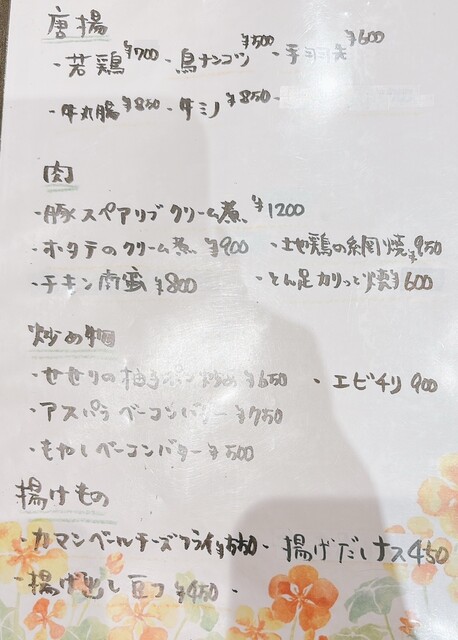 唐揚
・若鶏 ¥700 ・鳥ナンコツ ¥500 ・手羽先 ¥600
・牛丸腸 ¥850 ・牛ミノ ¥850 ・
肉
・豚スペアリブクリーム煮 ¥1200
・ホタテのクリーム煮 ¥900 ・土地鶏の網焼 ¥950
・チキン南蛮 ¥800 ・とん足カリっと焼 ¥600
炒め物
・せせりの柚子ポン炒め ¥650 ・エビチリ 900
・アスパラベーコンバター ¥750
・もやしベーコンバター ¥500
揚げもの
・カマンベールチーズフライ ¥550 ・揚げだしナス 450
・揚げ出し豆フ ¥450 ・